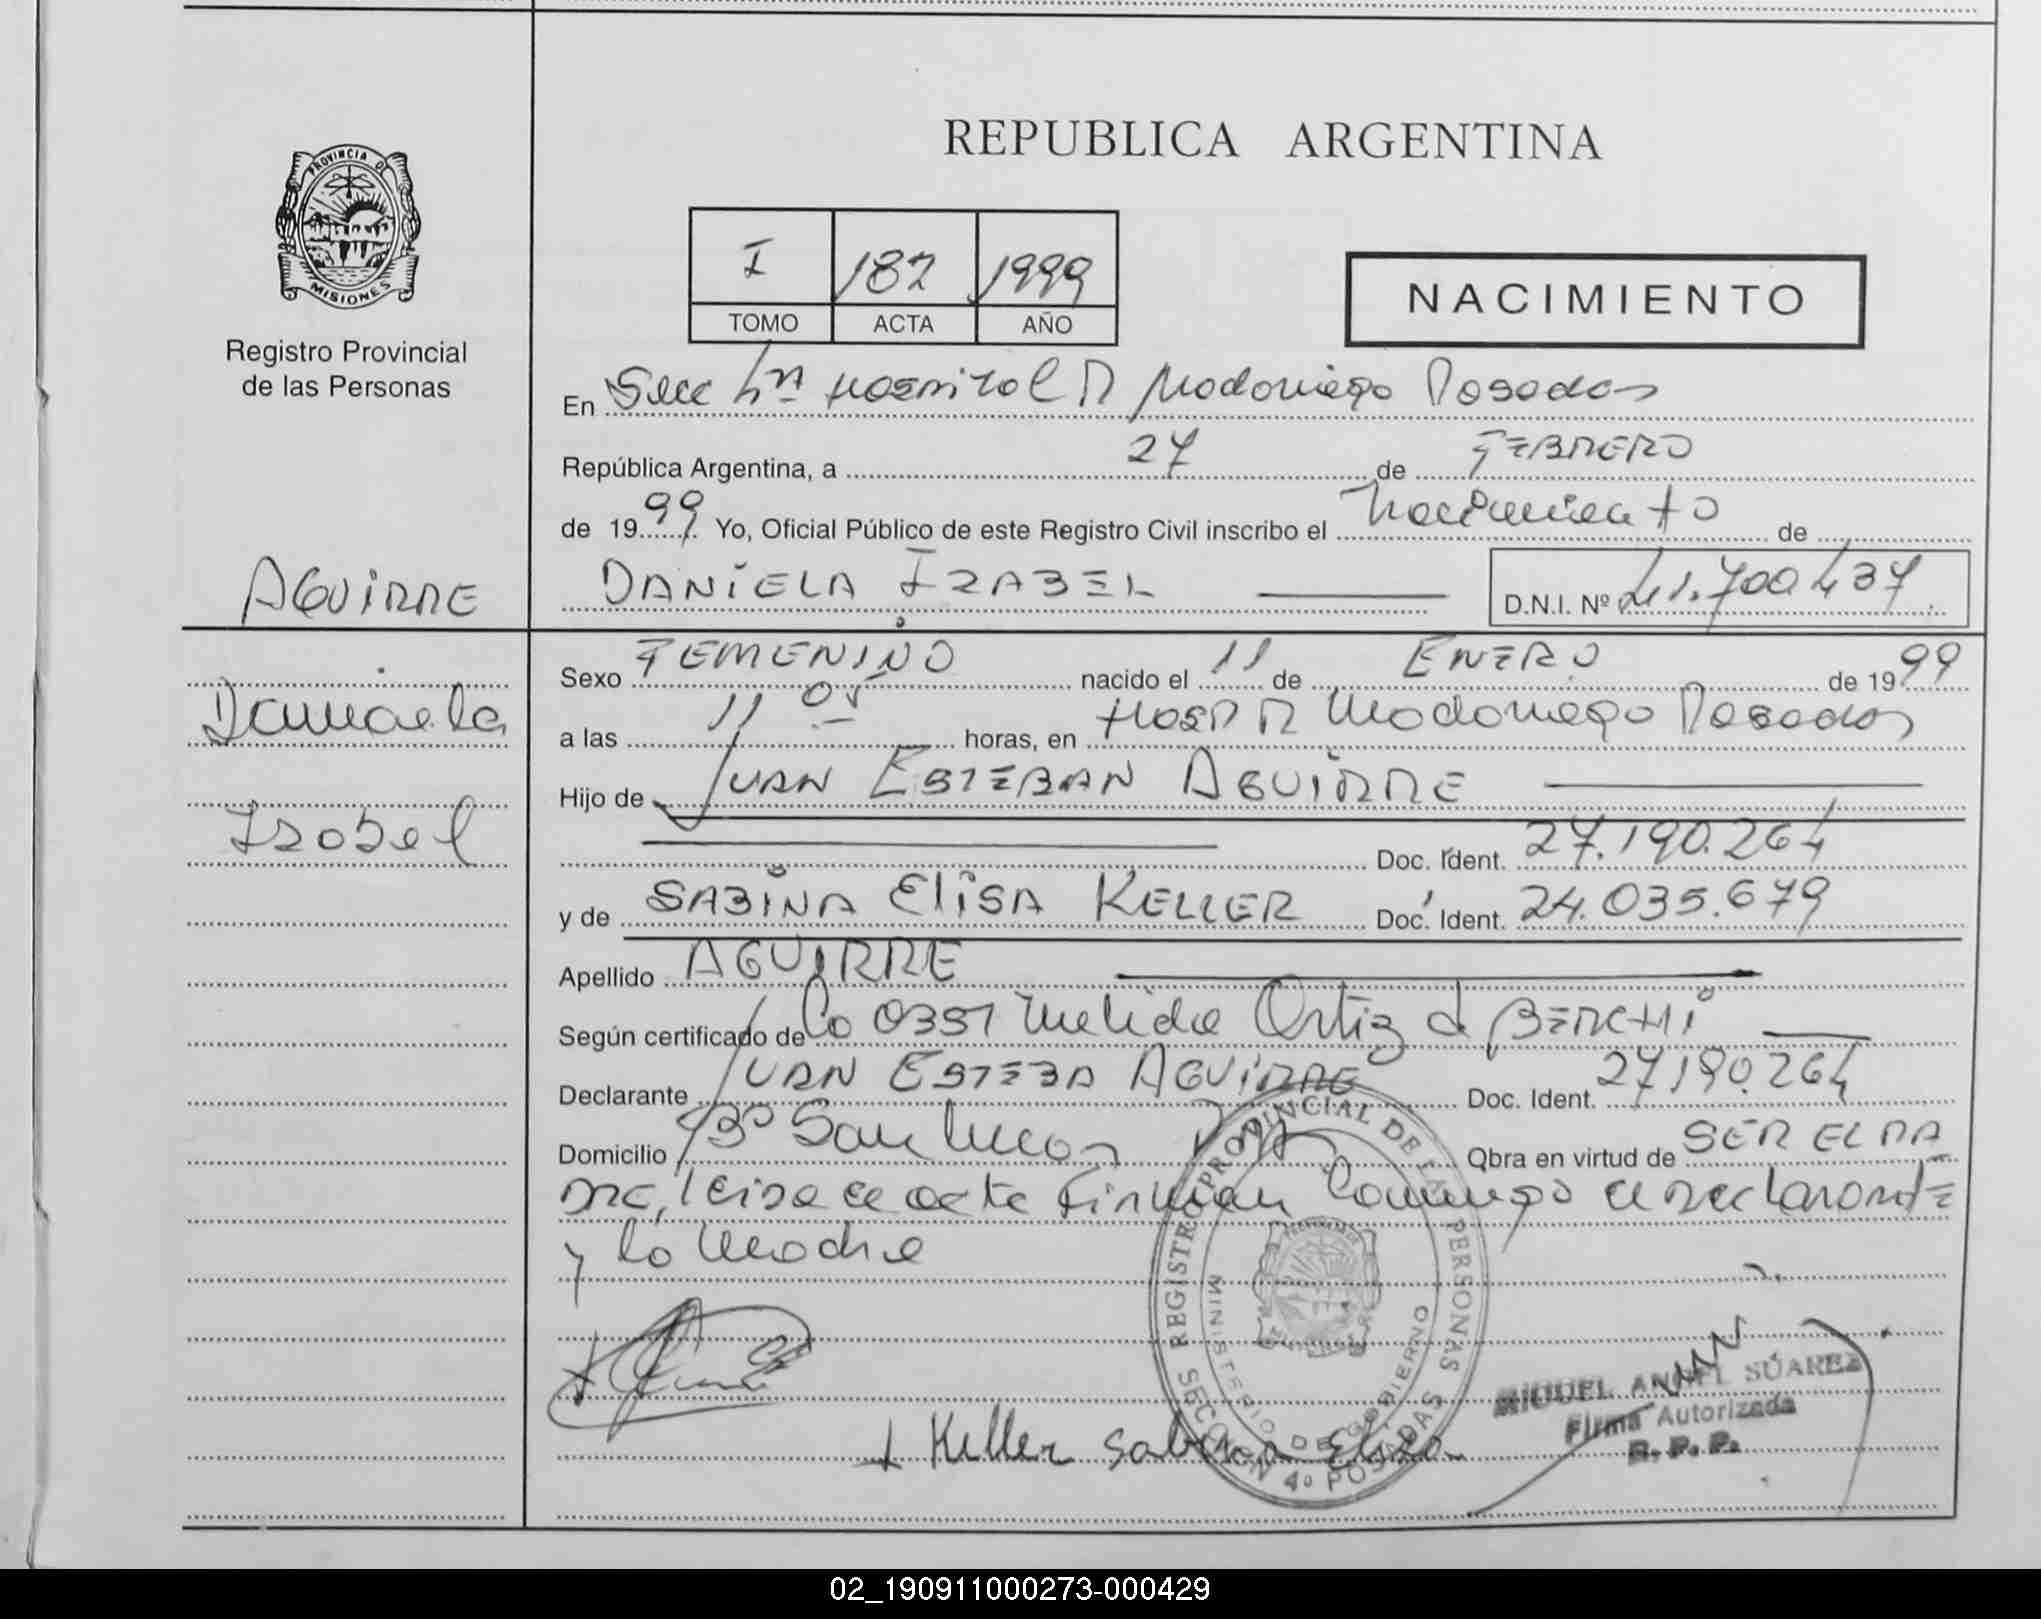 REPUBLICA ARGENTINA
PROVINCIA DE
MISIONES
Registro Provincial
de las Personas
I 187 1999
TOMO ACTA AÑO
NACIMIENTO
En Secc 4ta Hospital R Madariaga Posadas
República Argentina, a 27 de FEBRERO
de 1999 Yo, Oficial Público de este Registro Civil inscribo el Nacimiento de
AGUIRRE
DANIELA IZABEL
D.N.I. Nº 41.700.437
Daniela
Izabel
Sexo FEMENINO nacido el 11 de ENERO de 1999
a las 11 05 horas, en Hosp R Madariaga Posadas
Hijo de JUAN ESTEBAN AGUIRRE
Doc. Ident. 27.190.264
y de SABINA ELISA KELLER Doc. Ident. 24.035.679
Apellido AGUIRRE
Según certificado de la Obst Ortiz d BERCHI
Declarante JUAN ESTEBA AGUIRRE Doc. Ident. 27190.264
Domicilio San Lucas Obra en virtud de SER EL PA
DRE, leida el acta firman Conmigo el Declarante
y la Madre
Keller Sabina Elisa
REGISTRO PROVINCIAL DE LAS PERSONAS
MINISTERIO DE GOBIERNO
SECCION 4º POSADAS
MIGUEL ANGEL SÚAREZ
Firma Autorizada
R. P. P.
02_190911000273-000429